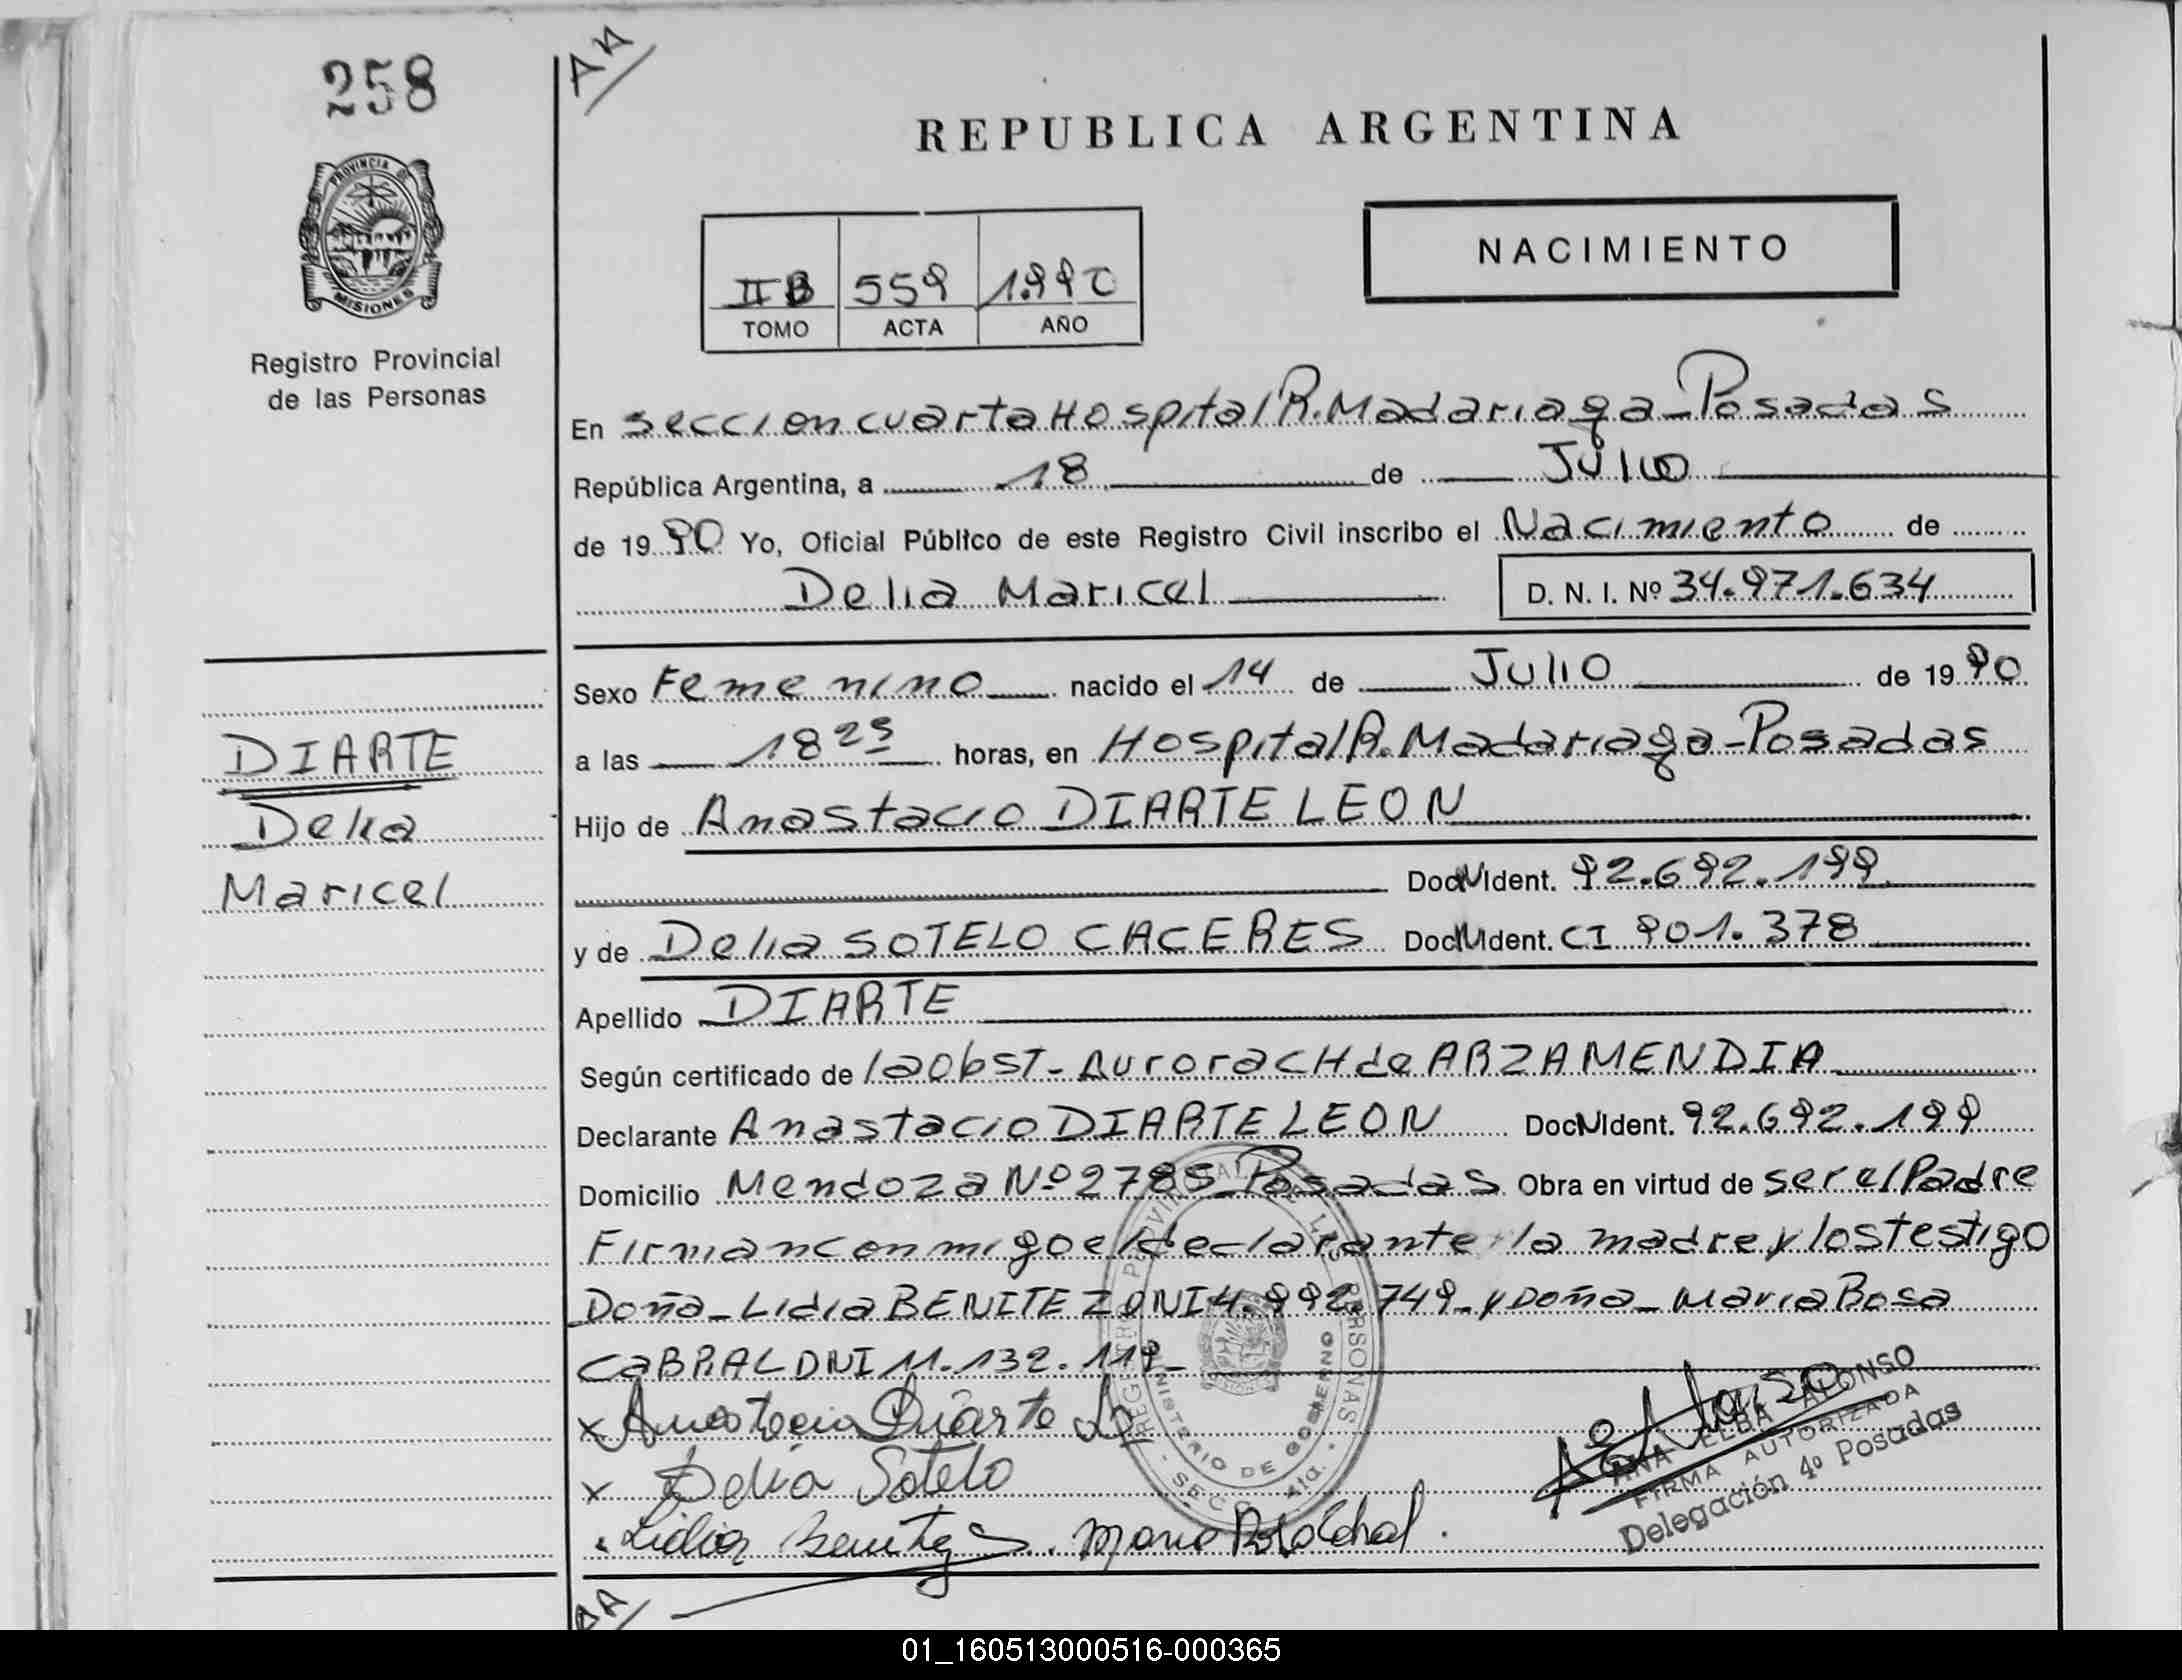 258
AA
REPUBLICA ARGENTINA
PROVINCIA DE
MISIONES
Registro Provincial
de las Personas
II B 559 1.990
TOMO ACTA AÑO
NACIMIENTO
En seccion cuarta Hospital R. Madariaga - Posadas
República Argentina, a 18 de Julio
de 19 90 Yo, Oficial Público de este Registro Civil inscribo el Nacimiento de
Delia Maricel D. N. I. Nº 34.971.634
Sexo Femenino nacido el 14 de Julio de 19 90
a las 18 25 horas, en Hospital R. Madariaga - Posadas
DIARTE
Delia
Maricel
Hijo de Anastacio DIARTE LEON
Doc N Ident. 92.692.199
y de Delia SOTELO CACERES Doc N Ident. CI 901.378
Apellido DIARTE
Según certificado de la Obst - Aurora CH de ARZAMENDIA
Declarante Anastacio DIARTE LEON Doc N Ident. 92.692.199
Domicilio Mendoza Nº 2785 - Posadas Obra en virtud de ser el Padre
Firman conmigo el declarante la madre y los testigo
Doña - Lidia BENITEZ DNI 4.992.749 - y Doña - Maria Rosa
CaBRAL DNI 11.132.119 -
x Anastacio Diarte L
x Delia Sotelo
Lidia Benitez . Maria Rosa Cabral .
REGISTRO PROVINCIAL DE LAS PERSONAS
MINISTERIO DE GOBIERNO
- SECC. 4ta. -
A E Alonso
ANA ELBA ALONSO
FIRMA AUTORIZADA
Delegación 4º Posadas
AA
01_160513000516-000365